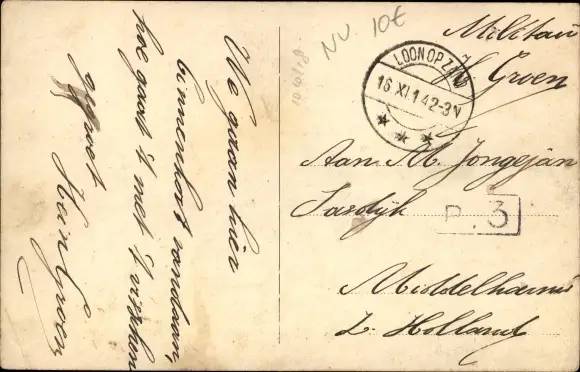 Militair
H. Groen
NV. 10€
LOONOPZAND
16 XI 14 2-3V
Aan M. Jongejan
Sasdijk
P. 3
Middelharnis
Z. Holland
We gaan hier
binnenkort vandaan,
hoe gaat 't met 't visschen
gegroet
Hein Groen